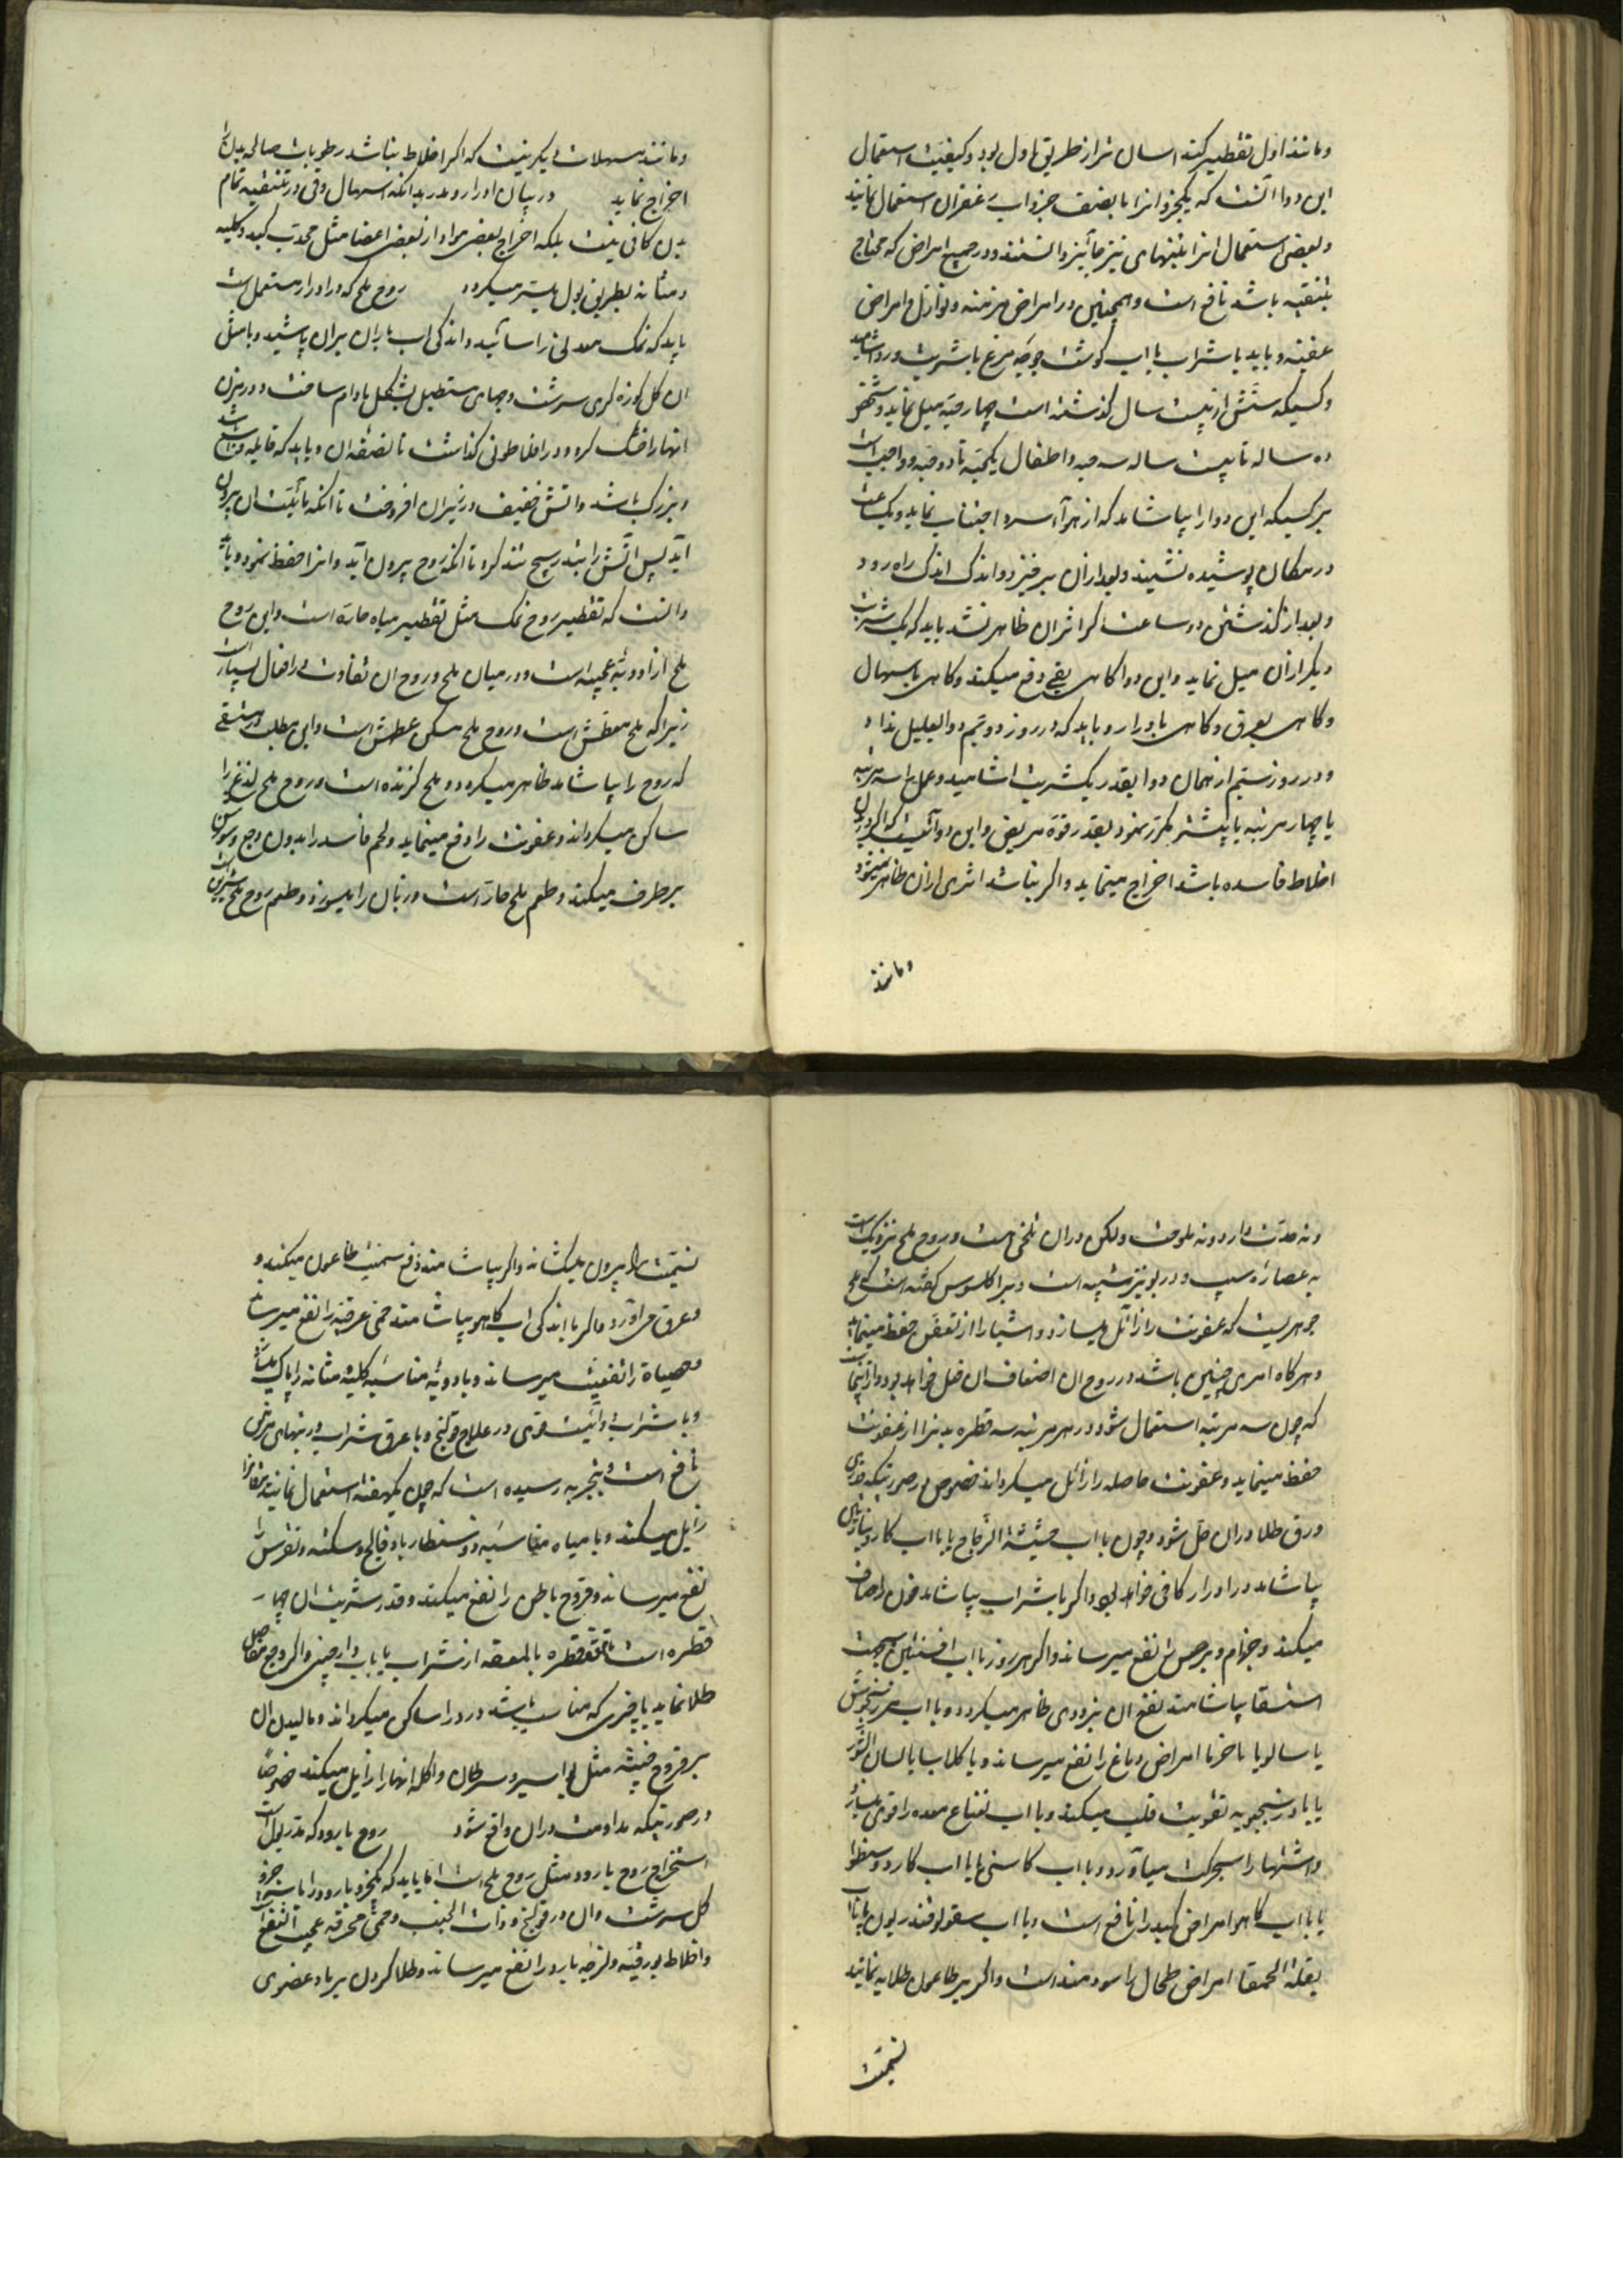 و مانند اول تقطیر کنند اسان تر از طریق اول بود و کیفیت استعمال
این دوا آنست که یکجزو انرا با نصف جزو اب زعفران استعمال نمایند
و بعضی استعمال انرا بتنهای نیز جائیز دانستند و در جمیع امراض که محتاج
بتنقیه باشد نافع است و همچنین در امراض مزمنه و نوازل و امراض
عفنه و باید با شراب یا اب کوشت جوجه مرغ یا شربت ورد اشامید
و کسیکه سنش از بیست سال کذشته است چهار حبه میل نماید و شخص
ده ساله تا بیست ساله سه حبه و اطفال یکحبه تا دو حبه و واجب است
بر کسیکه این دوا را بیاشامد که از هواء سرد اجتناب نماید و یکساعت
در مکان پوشیده نشیند و بعد ازان برخیزد و اندک اندک راه رود
و بعد از کذشتن دو ساعت اکر اثر ان ظاهر نشد باید که یک شربت
دیکر ازان میل نماید و این دوا کاهی بقی دفع میکند و کاهی باسهال
و کاهی بعرق و کاهی بادرار و باید که در روز دویم دوا بعلیل نداد
و در روز سیم از همان دوا بقدر یکشربت اشامید و عمل را سه مرتبه
یا چهار مرتبه یا بیشتر مکرر نمود بقدر قوة مریض و این دوا آنست که اکر در بدن
اخلاط فاسده باشد اخراج مینماید و اکر نباشد اثری ازان ظاهر نمیشود
و مانند
و مانند مسهلات دیکر نیست که اکر اخلاط نباشد رطوبات صالحه بدن را
اخراج نماید در بیان ادرار و مدر بدانکه اسهال و قی در تنقیه تمام
بدن کافی نیست بلکه اخراج بعض مواد از بعض اعضا مثل محدب کبد و کلیه
و مثانه بطریق بول بهتر میکردد روح ملح که در ادرار مستعمل است
باید که نمک معدنی را سائید و اندکی اب باران بران پاشید و با مثل
ان کل کوزه کری سرشت و حبهای مستطیل بشکل بادام ساخت و در تنور
انها را خشک کرد و در افلاطونی کذاشت تا نصف ان و باید که قابله وسیع باشد
و بزرک باشد و اتش خفیف در زیر ان افروخت تا انکه مائیت ان بیرون
آید پس آتش را بتدریج تند کرد تا انکه روح بیرون آید و انرا حفظ نمود و باید
دانست که تقطیر روح نمک مثل تقطیر میاه حاره است و این روح
ملح از ادویه عجیبه است و در میان ملح و روح ان تفاوت در افعال بسیار است
زیرا که ملح معطش است و روح ملح مسکن عطش است و این مطلب در مستسقی
که روح را بیاشامد ظاهر میکردد و ملح کزنده است و روح ملح لذع را
ساکن میکرداند و عفونت را دفع مینماید و لحم فاسد را بدون وجع و سوزش
برطرف میکند و طعم ملح حار است و زبان را میسوزد و طعم روح ملح شیرین است
و نه حدت دارد و نه ملوحت و لکن دران تلخی هست و روح ملح نزدیک است
به عصاره سیب و در بو نیز شبیه است و براکلسوس کفته است که ملح
جوهریست که عفونت را زائل میسازد و اشیا را از تعفن حفظ مینماید
و هرکاه امری چنین باشد در روح ان اضعاف ان فعل خواهد بود و از اینجاست
که چون سه مرتبه استعمال شود در هر مرتبه سه قطره بدنرا از عفونت
حفظ مینماید و عفونت حاصله را زائل میکرداند خصوص در صورتیکه قدری
ورق طلا دران حل شود و چون با اب حشیشة الزجاج یا با اب کاردوبنارس
بیاشامد در ادرار کافی خواهد بود و اکر با شراب بیاشامد خون را صاف
میکند و جذام و برص را نفع میرساند و اکر هر روز با اب افسنتین بجهت
استسقا بیاشامند نفع ان بزودی ظاهر میکردد و با اب مرزنجوش
یا سالویا یا خزما امراض دماغ را نفع میرساند و با کلاب یا با لسان الثور
یا بادرنجبویه تقویت قلب میکند و با اب نعناع معده را قوی میسازد
و اشتها را بحرکت میاورد و با اب کاسنی یا با اب کاردوسنطوا
یا با اب کاهو امراض کبد را نافع است و با اب سقولوفندریون یا با اب
بقلة الحمقا امراض طحال را سودمند است و اکر بر طاعون طلا به نمایند
سمیت
سمیت را بیرون میکشاند و اکر بیاشامند دفع سمیت طاعون میکند و
و عرق می آورد و اکر با اندکی اب کاهو بیاشامند حمی محرقه را نفع میرساند
و حصاة را تفتیت میرساند و با ادویه مناسبه کلیه و مثانه را پاک میسازد
و با شراب دوائیست قوی در علاج قولنج و با عرق شراب در تبهای مزمن
نافع است و بتجربه رسیده است که چون یکهفته استعمال نمایند یرقانرا
زایل میکند و با میاه مناسبه ذوسنطاریا و فالج و سکته و نقرس را
نفع میرساند و قروح باطن را نفع میکند و قدر شربت ان چهار
قطره است تا قطره یا ملعقه از شراب یا با اب دارچینی و اکر وجع مفاصل
طلا نماید با چیزی که مناسب باشد درد را ساکن میکرداند و مالیدن ان
بر قروح خبیثه مثل بواسیر و سرطان و اکله انها را زایل میکند خصوصا
در صورتیکه مداومت دران واقع شود روح بارود که مدر بول است
استخراج روح بارود مثل روح ملح است اما باید که یکجزو بارود را با سه جزو
کل سرشت وان در قولنج و ذات الجنب و حمی محرقه عجیب النفع است
و اخلاط بورقیه و لزجه بارد را نفع میرساند و طلا کردن بر باد عضوی